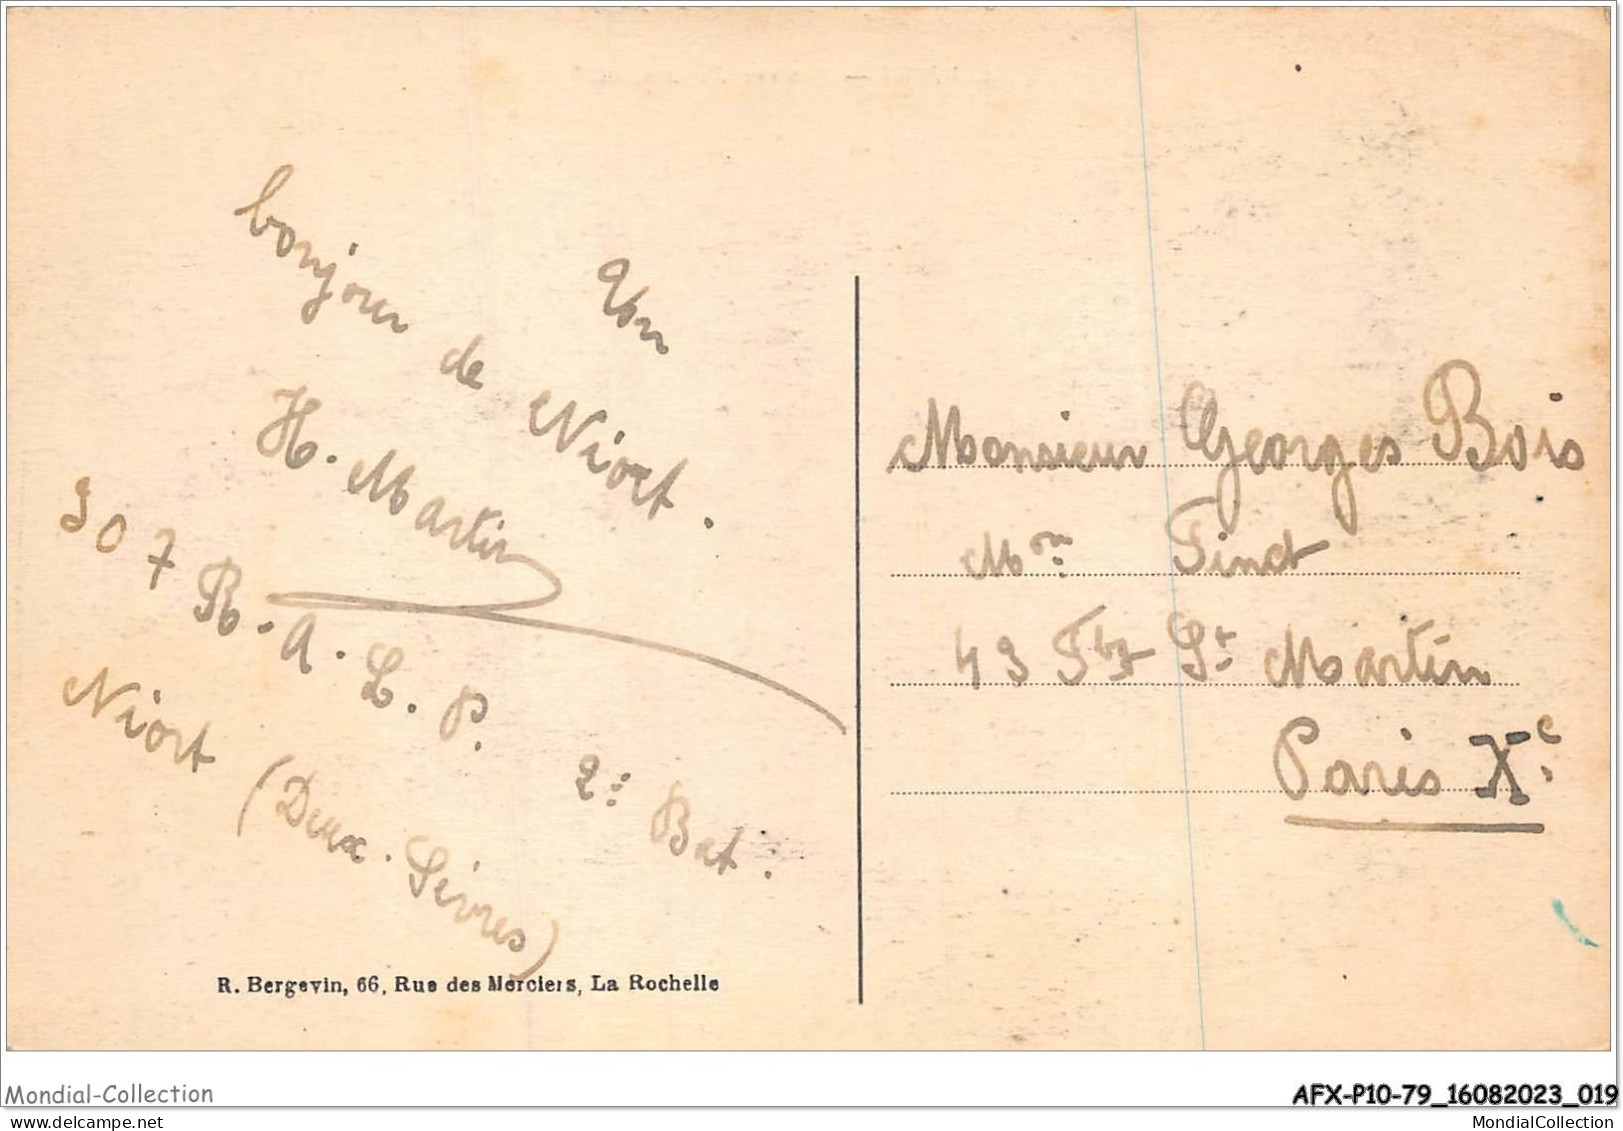 Un
bonjour de Niort.
H. Martin
507 R.A.L.P. 2e Bat.
Niort (Deux-Sèvres)
R. Bergevin, 66, Rue des Merciers, La Rochelle
Monsieur Georges Bois
Mon Finct
43 Fbg St Martin
Paris Xe
Mondial-Collection
AFX-P10-79_16082023_019
www.delcampe.net
MondialCollection